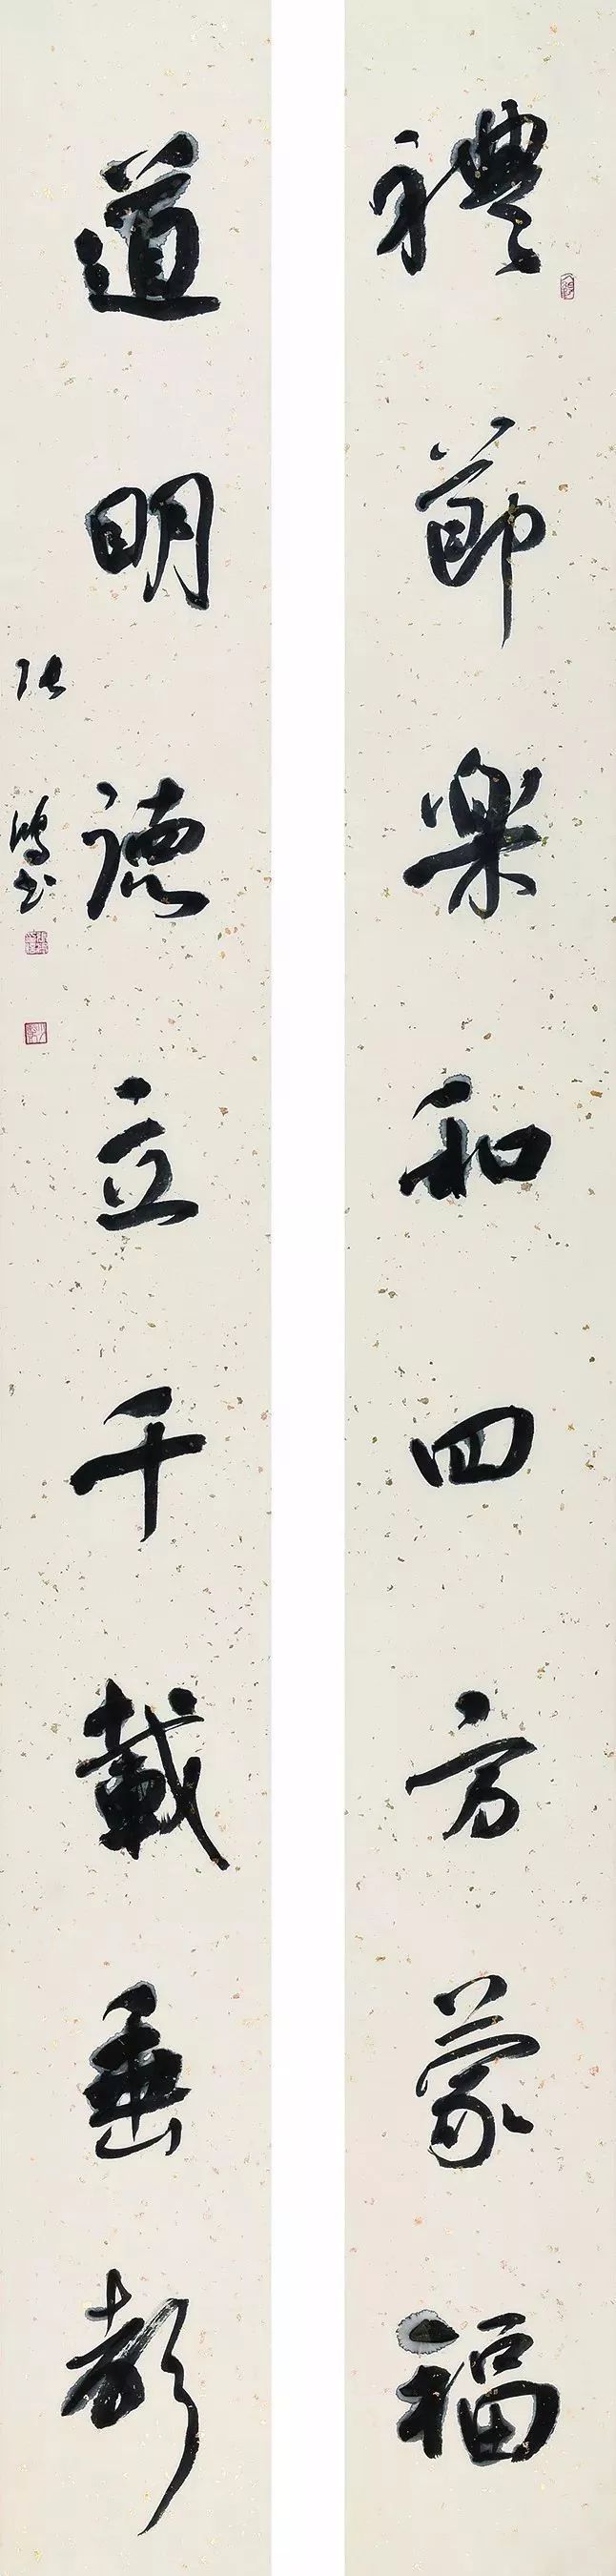 禮節樂和四方蒙福
道明德立千載垂
張鴻書